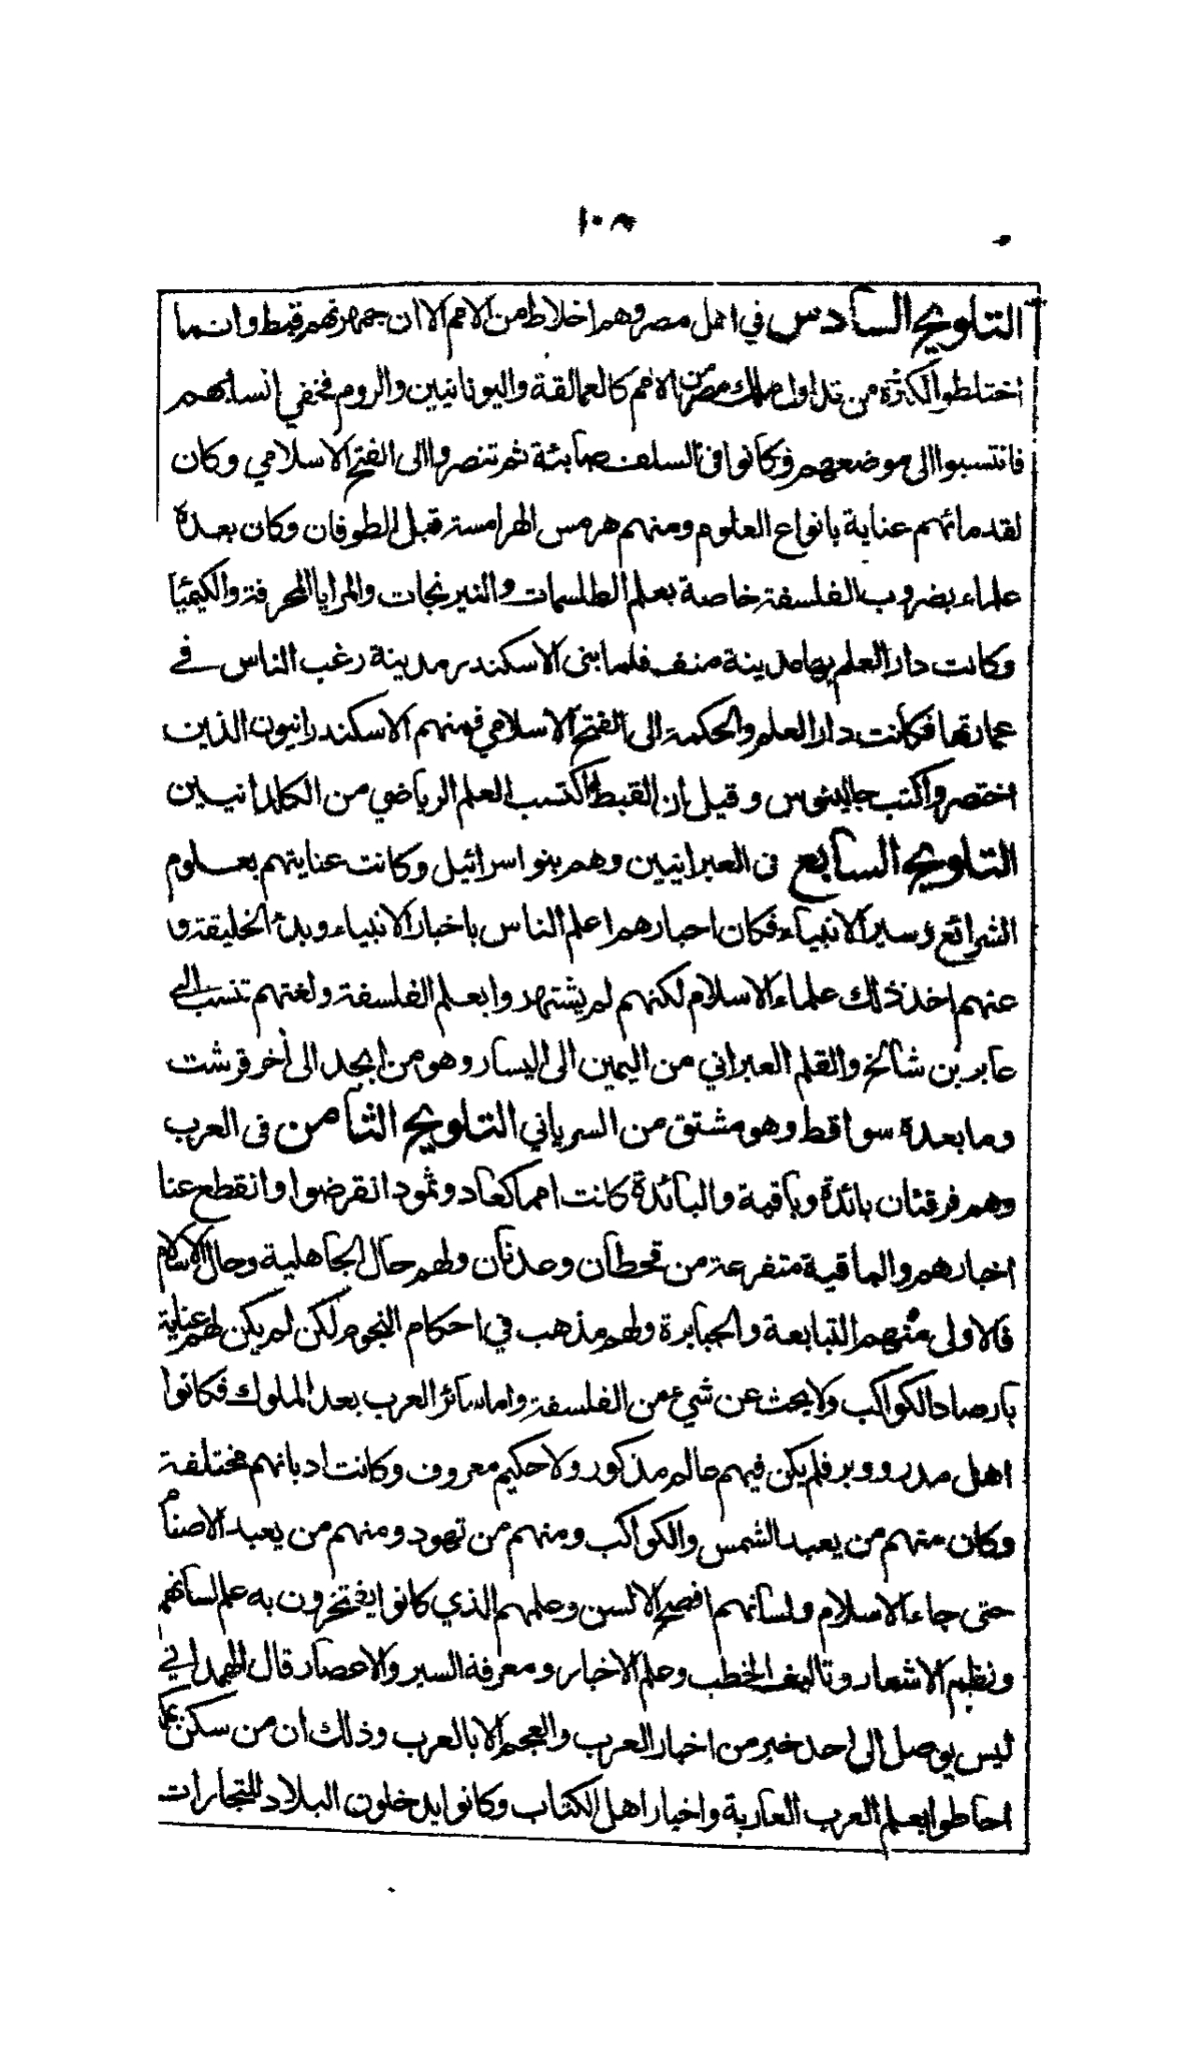 ١٠٨
التلويح السادس في اهل مصر وهم اخلاط من الامم الا ان جمهرتهم قبط وانما
اختلطوا لكثرة من تداول ملك مصر من الامم كالعمالقة واليونانيين والروم فخفي انسابهم
فانتسبوا الى موضعهم وكانوا في السلف صابئة ثم تنصروا الى الفتح الاسلامي وكان
لقدمائهم عناية بانواع العلوم ومنهم هرمس الهرامسة قبل الطوفان وكان بعده
علماء بضروب الفلسفة خاصة بعلم الطلسمات والنيرنجات والمرايا المحرقة والكيميا
وكانت دار العلم بها مدينة منف فلما بنى الاسكندر مدينة رغب الناس في
عمارتها فكانت دار العلم والحكمة الى الفتح الاسلامي فمنهم الاسكندرانيون الذين
اختصروا كتب جالينوس وقيل ان القبط اكتسب العلم الرياضي من الكلدانيين
التلويح السابع في العبرانيين وهم بنو اسرائيل وكانت عنايتهم بعلوم
الشرائع وسير الانبياء فكان احبارهم اعلم الناس باخبار الانبياء وبدئ الخليقة و
عنهم اخذ ذلك علماء الاسلام لكنهم لم يشتهروا بعلم الفلسفة ولغتهم تنسب الى
عابر بن شالخ والقلم العبراني من اليمين الى اليسار وهو من ابجد الى أخر قرشت
وما بعده سواقط وهو مشتق من السرياني التلويح الثامن في العرب
وهم فرقتان بائدة وباقية والبائدة كانت امما كعاد وثمود انقرضوا وانقطع عنا
اخبارهم والباقية متفرعة من قحطان وعدنان ولهم حال الجاهلية وحال الاسلام
فالاولى منهم التبابعة والجبابرة ولهم مذهب في احكام النجوم لكن لم يكن لهم عناية
بارصاد الكواكب ولا بحث عن شيء من الفلسفة واما سائر العرب بعد الملوك فكانوا
اهل مدر ووبر فلم يكن فيهم عالم مذكور ولا حكيم معروف وكانت اديانهم مختلفة
وكان منهم من يعبد الشمس والكواكب ومنهم من تهود ومنهم من يعبد الاصنام
حتى جاء الاسلام ولسانهم افصح الالسن وعلمهم الذي كانوا يفتخرون به علم لسانهم
ونظم الاشعار وتاليف الخطب وعلم الاخبار ومعرفة السير والاعصار قال الهمداني
ليس يوصل الى احد خبر من اخبار العرب والعجم الا بالعرب وذلك ان من سكن
احاطوا بعلم العرب العاربة واخبار اهل الكتاب وكانوا يدخلون البلاد للتجارات